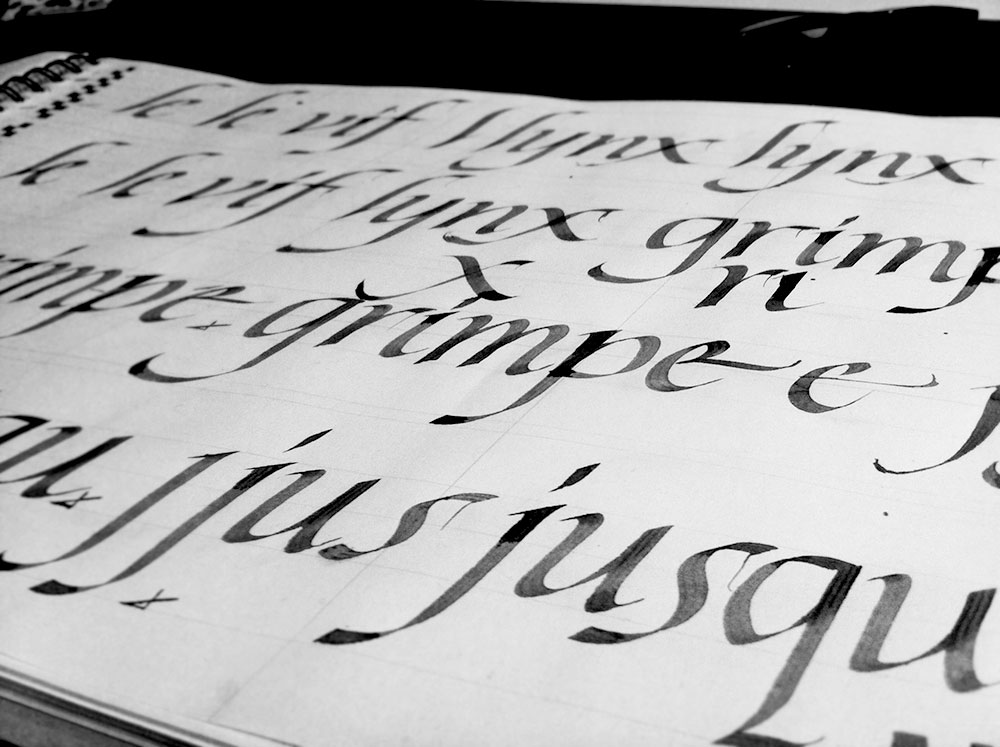 le le vif l lynx lynx
le le vif lynx grimp
x ri
rimpe grimpe e
qu j jus jusqu